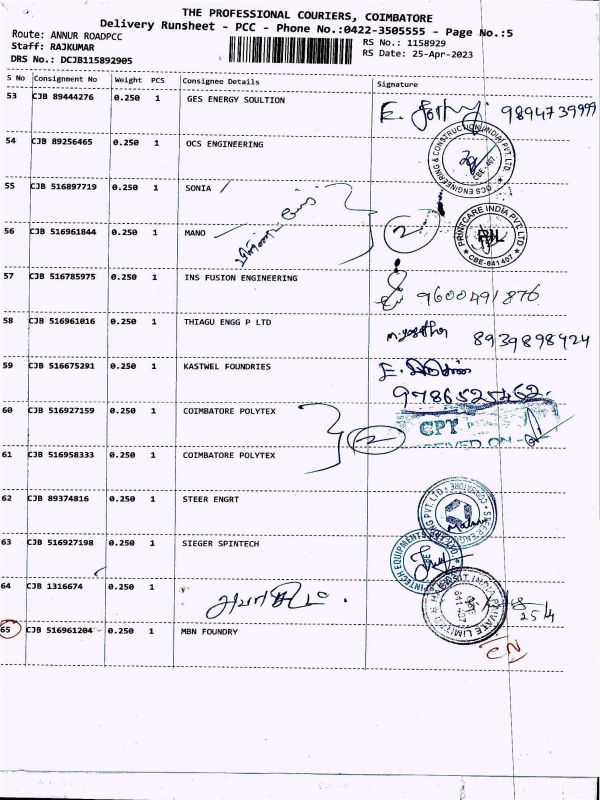 THE PROFESSIONAL COURIERS, COIMBATORE
Delivery Runsheet - PCC - Phone No.:0422-3505555 - Page No.:5
Route: ANNUR ROADPCC
RS No.: 1158929
Staff: RAJKUMAR
RS Date: 25-Apr-2023
DRS No.: DCJB115892905
S No Consignment No Weight PCS Consignee Details Signature
53 CJB 89444276 0.250 1 GES ENERGY SOULTION
9894739999
54 CJB 89256465 0.250 1 OCS ENGINEERING
OCS ENGINEERING & CONSTRUCTION (INDIA) PVT. LTD
CBE - 407
55 CJB 516897719 0.250 1 SONIA
2
56 CJB 516961844 0.250 1 MANO
PRINTCARE INDIA PVT. LTD
CBE-641407
57 CJB 516785975 0.250 1 INS FUSION ENGINEERING
9600491876
58 CJB 516961016 0.250 1 THIAGU ENGG P LTD
8939898424
59 CJB 516675291 0.250 1 KASTWEL FOUNDRIES
9786525462
60 CJB 516927159 0.250 1 COIMBATORE POLYTEX
CPT
2
61 CJB 516958333 0.250 1 COIMBATORE POLYTEX
62 CJB 89374816 0.250 1 STEER ENGRT
63 CJB 516927198 0.250 1 SIEGER SPINTECH
64 CJB 1316674 0.250 1
25/4
65 CJB 516961204 0.250 1 MBN FOUNDRY